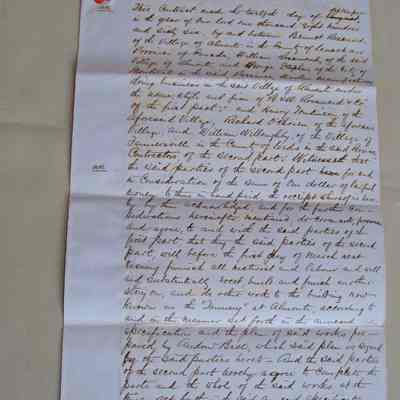 This Contract made the twelfth day of October
in the year of our Lord one thousand eight hundred
and sixty six, by and between Bennett Rosamond
of the Village of Almonte in the County of Lanark and
Province of Canada, William Rosamond of the said
Village of Almonte and George Stephen of the City of
Montreal in the said Province
doing business in the said Village of Almonte under
the name, style and firm of B & W Rosamond & Co
of the first part; and Henry of the
aforesaid Village, Richard of the aforesaid
Village, and William Willoughby, of the Village of
in the County of Leeds in the said Province
Contractors of the second part: Witnesseth that
the said parties of the second part for and
in Consideration of the sum of One dollar of lawful
money to them in hand paid the receipt whereof is here-
by by them acknowledged, and for the further Con-
siderations hereinafter mentioned do covenant, promise
and agree, to and with the said parties of the
first part that they the said parties of the second
part, will before the first day of March next
ensuing furnish all material and labour and will
and substantially erect build and finish another
story on, and do other work to the building now
known as the Tannery at Almonte, according to
and in the manner set forth in the annexed
specification and the plan of said works pre-
pared by Andrew Bell, which said plan is signed
by the said parties hereto - And the said parties
of the second part hereby agree to complete the
parts and the whole of the said works at the